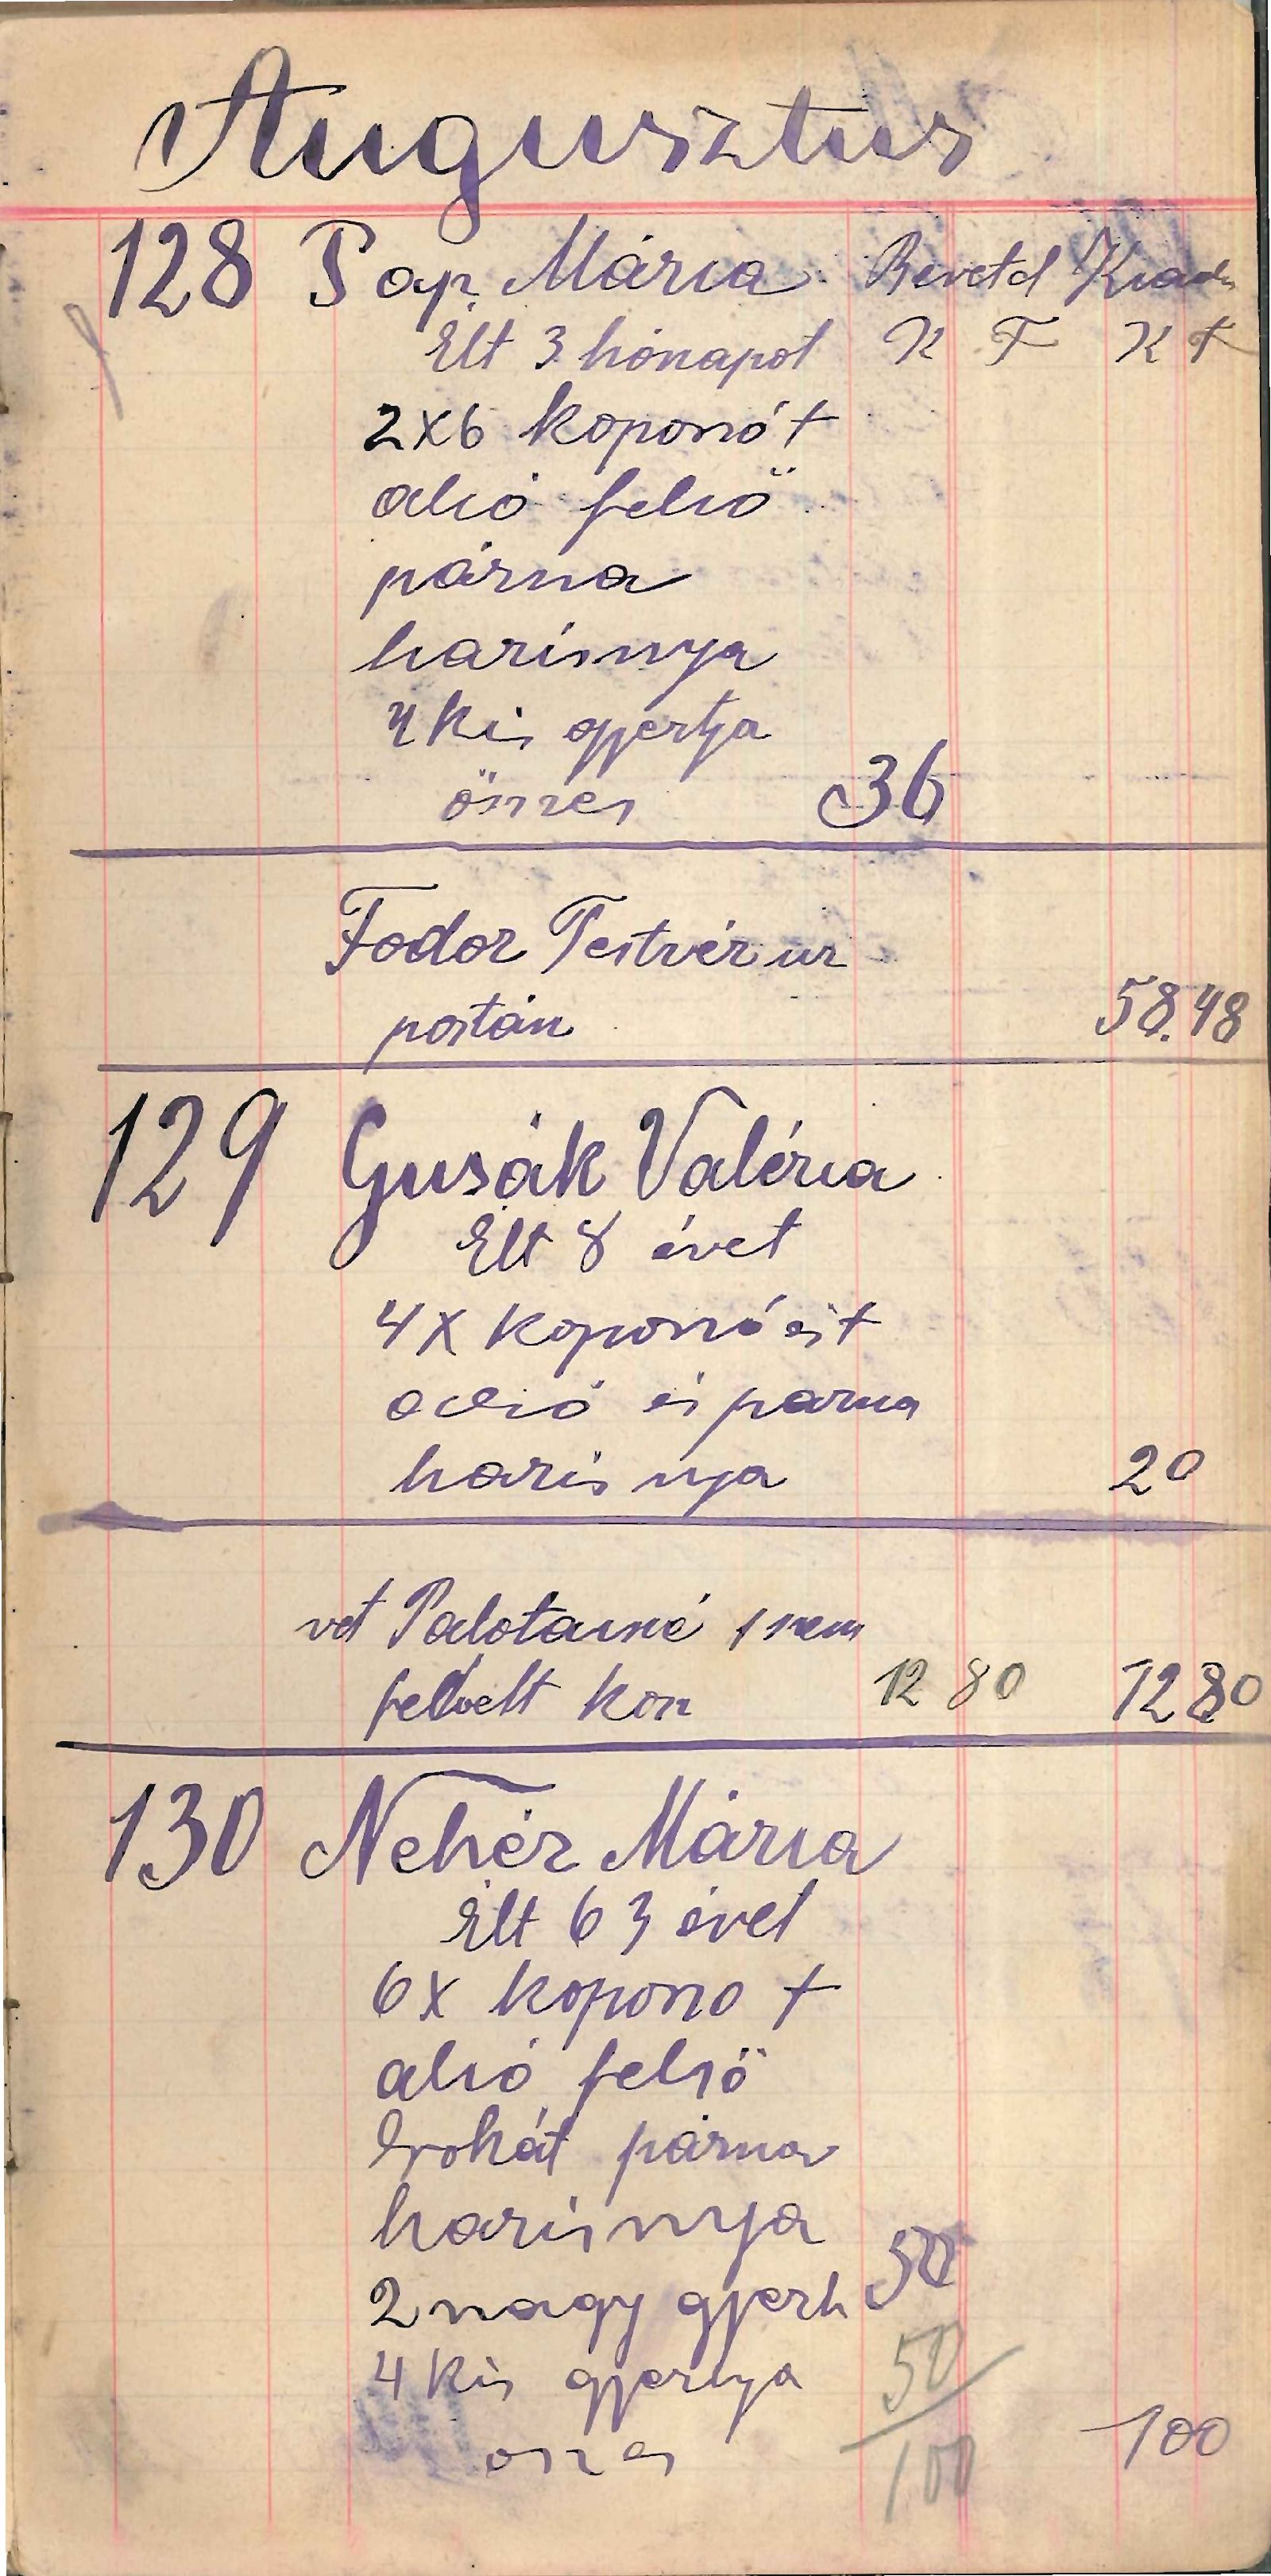 Augusztus
128 Pap Mária Bevetel Kiad
Élt 3 hónapot K F K F
2x6 koporsót
alsó felsö
párna
harisnya
4 kis gyertya
összes 36
Fodor Testvér ur
postán 58.48
129 Gusák Valéria
Élt 8 évet
4x koporsó és t
alsó és parna
harisnya 20
vet Palotainé 1 nem
felvelt kos 12 80 12 80
130 Nehéz Mária
Élt 63 évet
6x koporso t
alsó felsö
brokát párna
harisnya
2 nagy gyert 50
4 kis gyertya 50
oszes 100 100